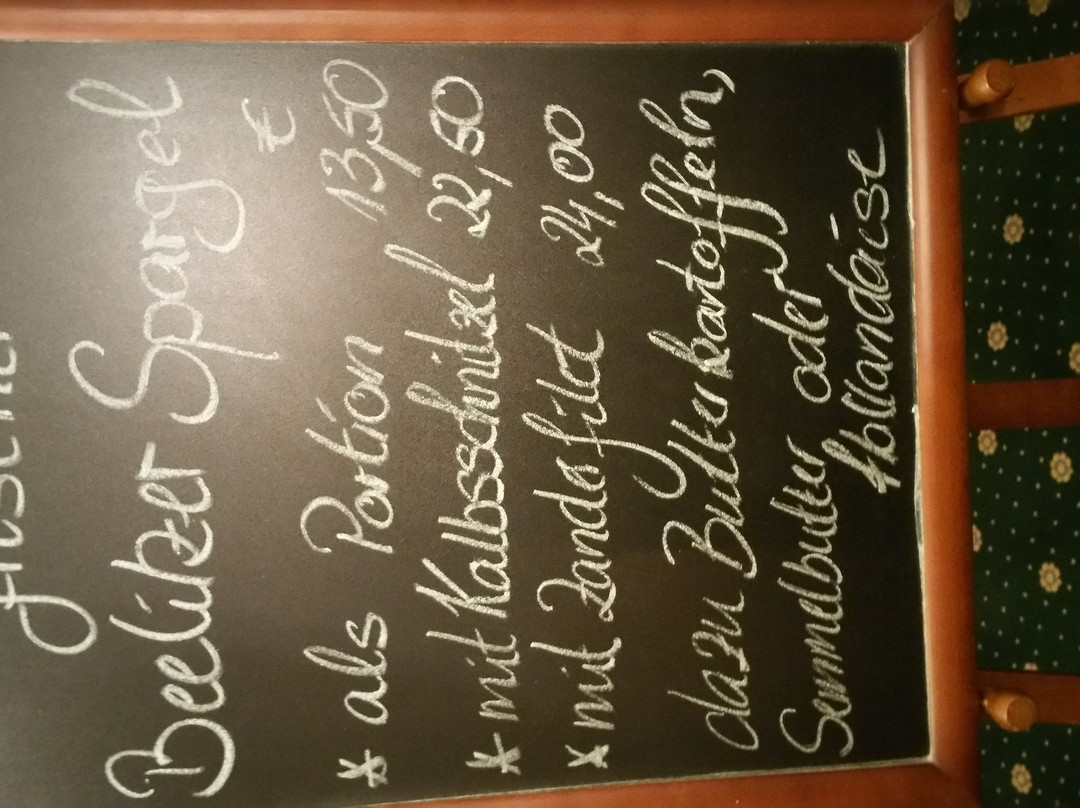 Beelitzer Spargel
€
* als Portion 13,50
* mit Kalbsschnitzel 22,50
* mit Zanderfilet 24,00
dazu Butterkartoffeln,
Semmelbutter oder
Hollandaise